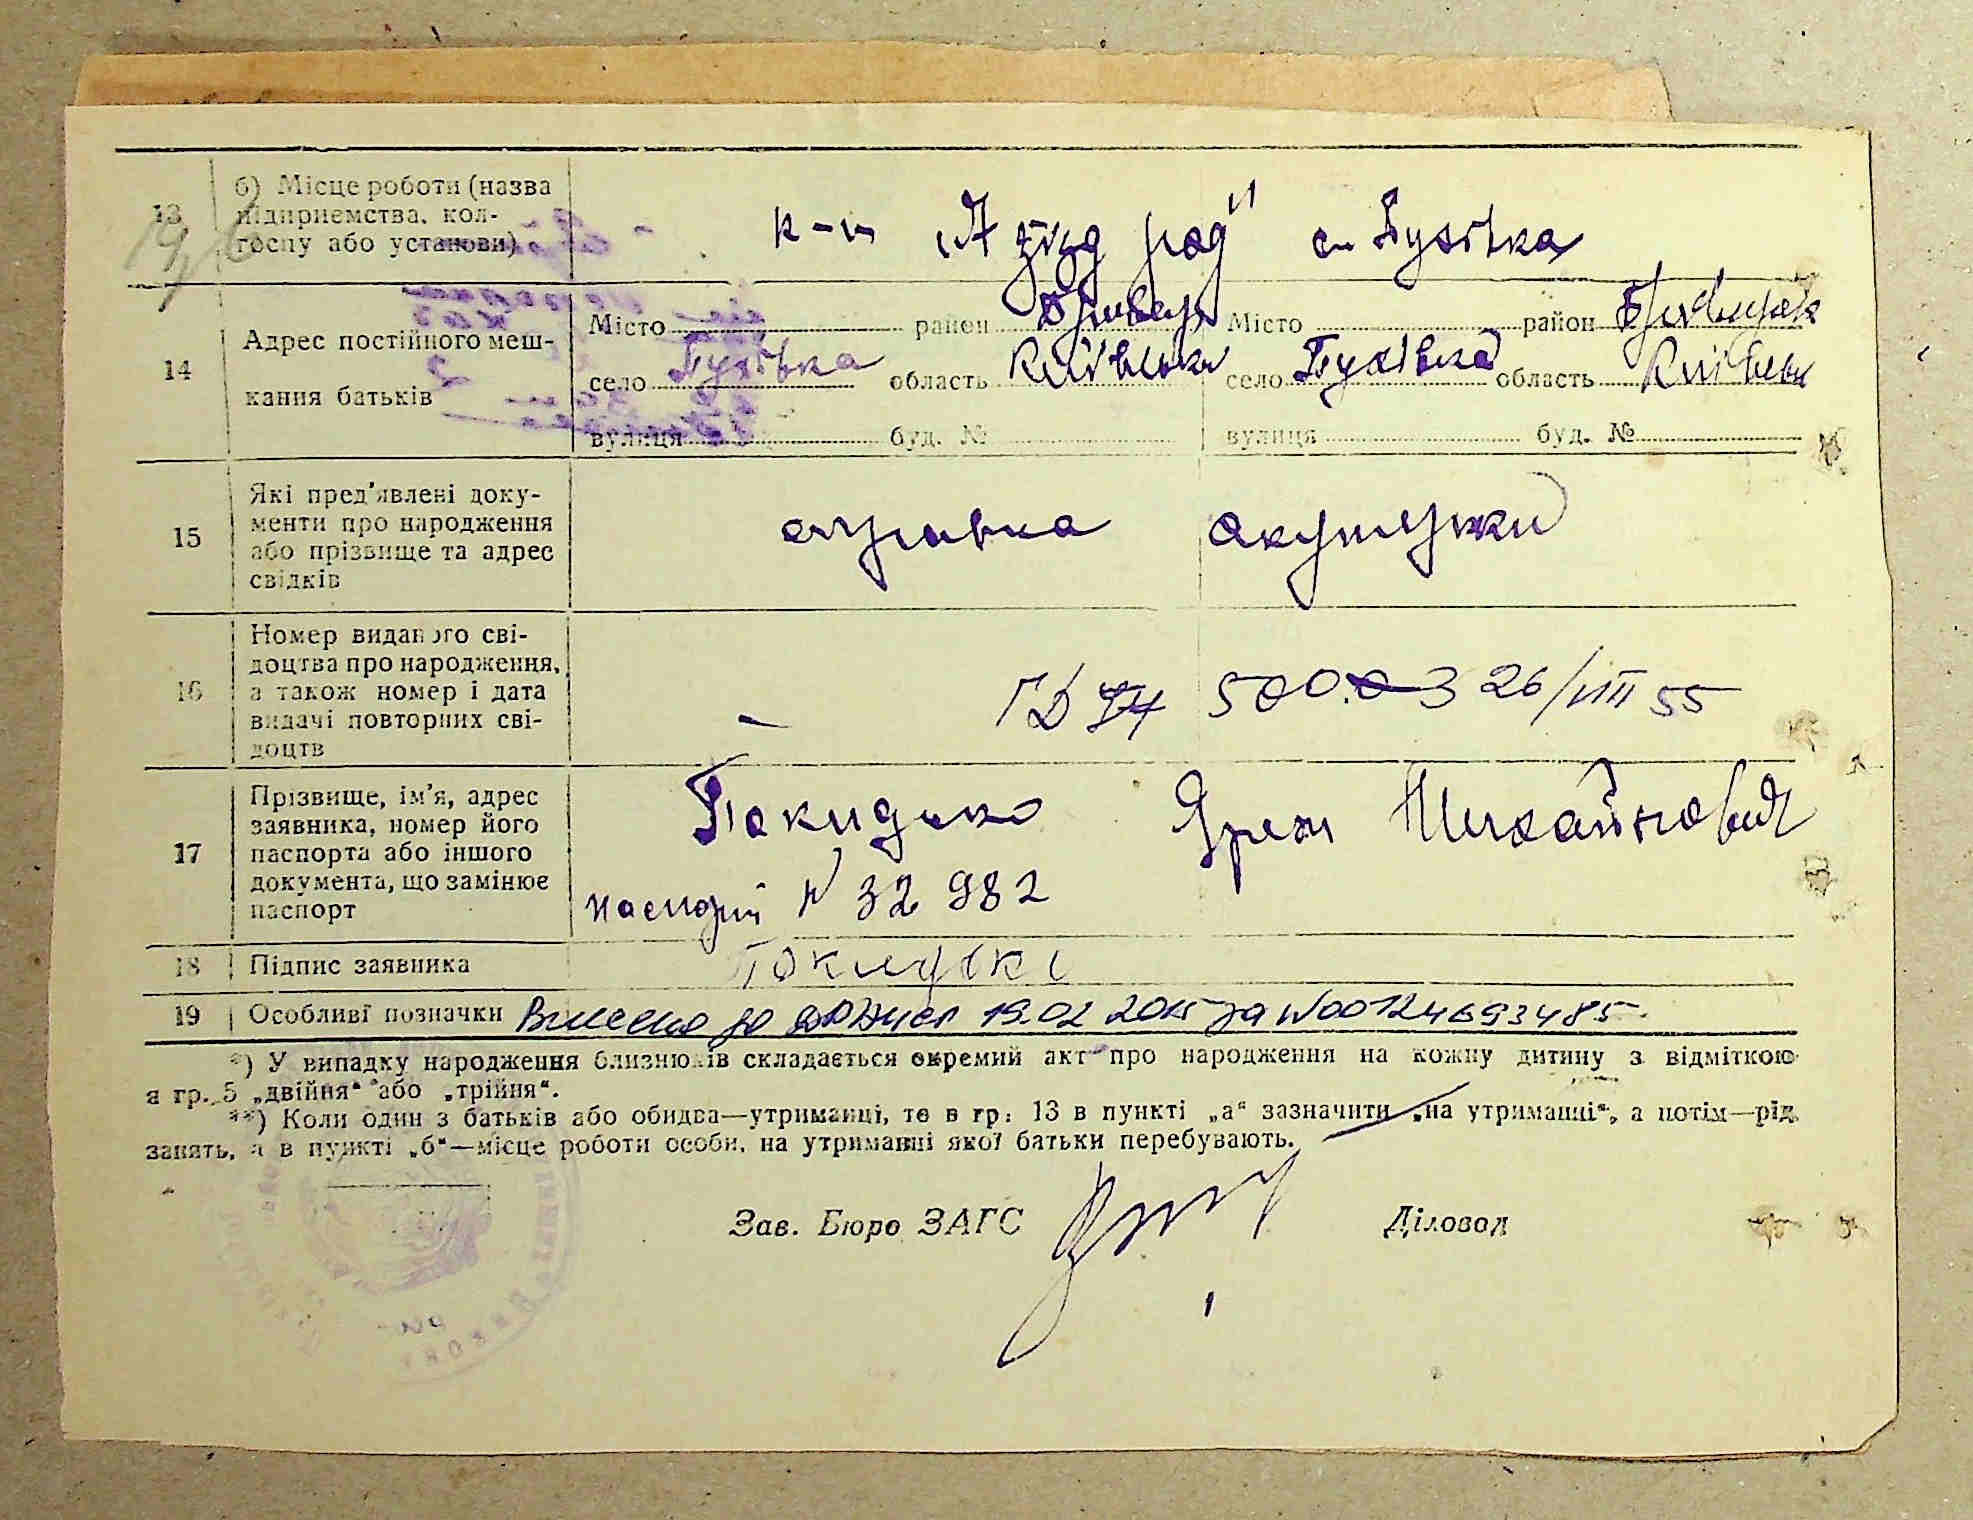 13 б) Місце роботи (назва
підприємства, кол-
госпу або установи)
к-п с. Пухівка
14 Адрес постійного меш-
кання батьків
Місто район Місто район
село Пухівка область Київська село Пухівка область Київськ
вулиця буд. № вулиця буд. №
15 Які пред'явлені доку-
менти про народження
або прізвище та адрес
свідків
справка акушерки
16 Номер виданого сві-
доцтва про народження,
а також номер і дата
видачі повторних сві-
доцтв
26/VIII 55
17 Прізвище, ім'я, адрес
заявника, номер його
паспорта або іншого
документа, що замінює
паспорт
Покидько Михайлович
паспорт N 32 982
18 Підпис заявника
Покидько
19 Особливі позначки Внесено до 19.02 2015 за N00124693485.
*) У випадку народження близнюків складається окремий акт про народження на кожну дитину з відміткою
в гр. 5 „двійня“ або „трійня“.
**) Коли один з батьків або обидва—утриманці, то в гр: 13 в пункті „а“ зазначити „на утриманні“, а потім—рід
занять, а в пункті „б“—місце роботи особи, на утриманні якої батьки перебувають.
Зав. Бюро ЗАГС Діловод